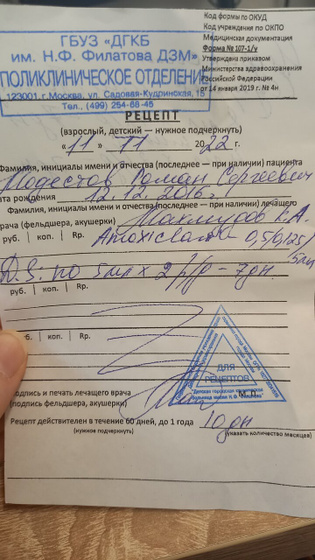 Код формы по ОКУД
Код учреждения по ОКПО
Медицинская документация
Форма № 107-1/у
Утверждено приказом
Министерства здравоохранения
Российской Федерации
от 14 января 2019 г. № 4н
ГБУЗ "ДГКБ
им. Н.Ф. Филатова ДЗМ"
ПОЛИКЛИНИЧЕСКОЕ ОТДЕЛЕНИЕ
123001, г. Москва, ул. Садовая-Кудринская, 15
Тел., (499) 254-68-46
РЕЦЕПТ
(взрослый, детский — нужное подчеркнуть)
«11» 11 2022 г.
Фамилия, инициалы имени и отчества (последнее — при наличии) пациента
Модестов Роман Сергеевич
та рождения 12.12.2016 г.
Фамилия, инициалы имени и отчества (последнее — при наличии) лечащего
рача (фельдшера, акушерки)
руб. | коп. | Rp. Amoxiclav - 0,5/0,125/
5мл
D.S: по 5мл х 2 р/д - 7дн.
руб. | коп. | Rp.
б. | коп. | Rp.
ДЛЯ
РЕЦЕПТОВ
одпись и печать лечащего врача
(подпись фельдшера, акушерки)
М. П.
Рецепт действителен в течение 60 дней, до 1 года 10дн
(нужное подчеркнуть)
(указать количество месяцев)